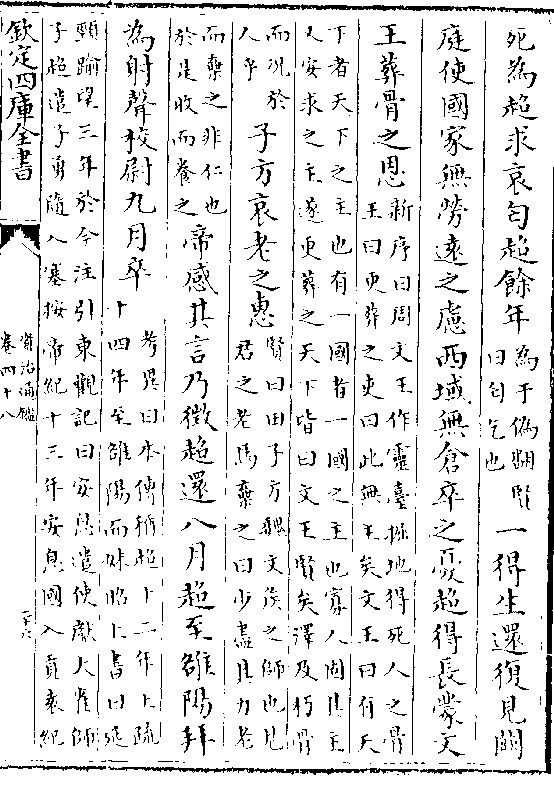 死為超求哀匄超餘年為于偽翻賢曰匄乞也一得生還復見闕
庭使國家無勞遠之慮西域無倉卒之憂超得長蒙文
王葬骨之恩新序曰周文王作靈臺掘地得死人之骨王曰更葬之吏曰此無主矣文王曰有天
下者天下之主也有一國者一國之主也寡人固其主人安求之主遂更葬之天下皆曰文王賢矣澤及朽骨
而況於人乎子方哀老之惠賢曰田子方魏文侯之師也見君之老馬棄之曰少盡其力老
而棄之非仁也於是收而養之帝感其言乃徵超還八月超至雒陽拜
為射聲校尉九月卒考異曰本傳稱超十二年上疏十四年至雒陽而妹昭上書曰延
頸踰望三年於今注引東觀記曰安息遣使獻大雀師子超遣子勇隨入塞按帝紀十三年安息國入貢袁紀
欽定四庫全書
資治通鑑
卷四十八
二十六